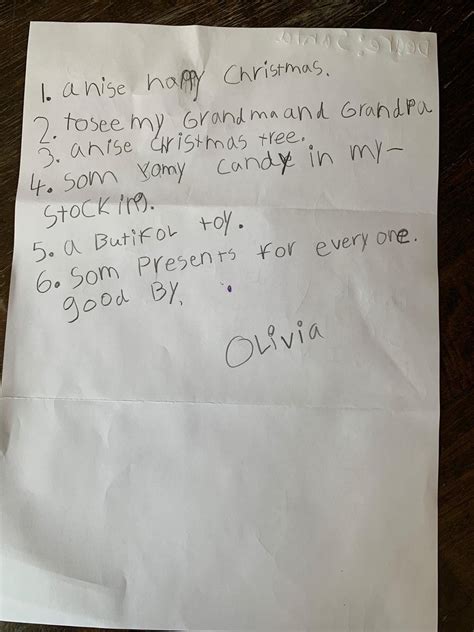 1. a nise happy Christmas.
2. to see my Grandma and Grandpa
3. a nise christmas tree.
4. som yamy candy in my-
stocking.
5. a Butifol toy.
6. som presents for every one.
good By,
Olivia